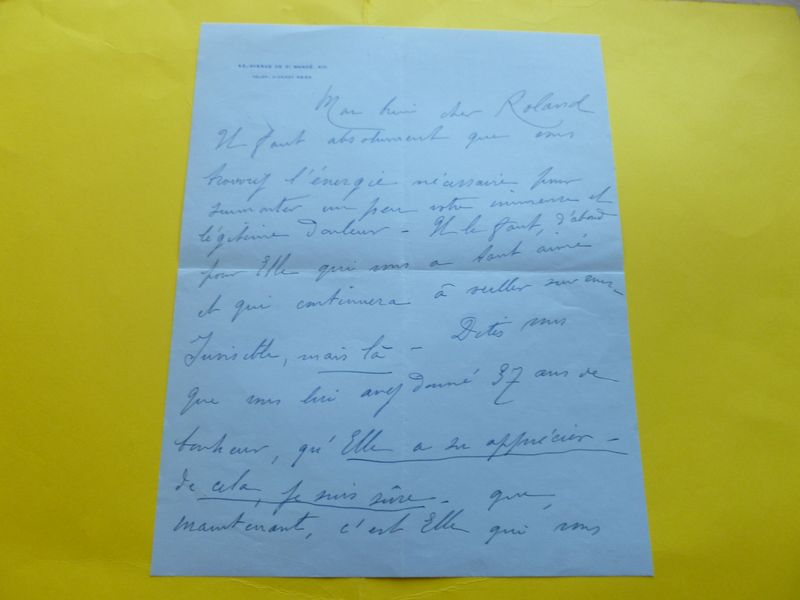 AVENUE DE St MANDÉ. XII
Mon bien cher Roland
Il faut absolument que vous
trouviez l'énergie nécessaire pour
surmonter un peu votre immense et
légitime douleur - Il le faut, d'abord
pour Elle qui vous a tant aimé
et qui continuera à veiller sur vous -
Invisible, mais là - Dites vous
que vous lui avez donné 37 ans de
bonheur, qu'Elle a su apprécier -
de cela, je suis sûre - que,
maintenant, c'est Elle qui vous